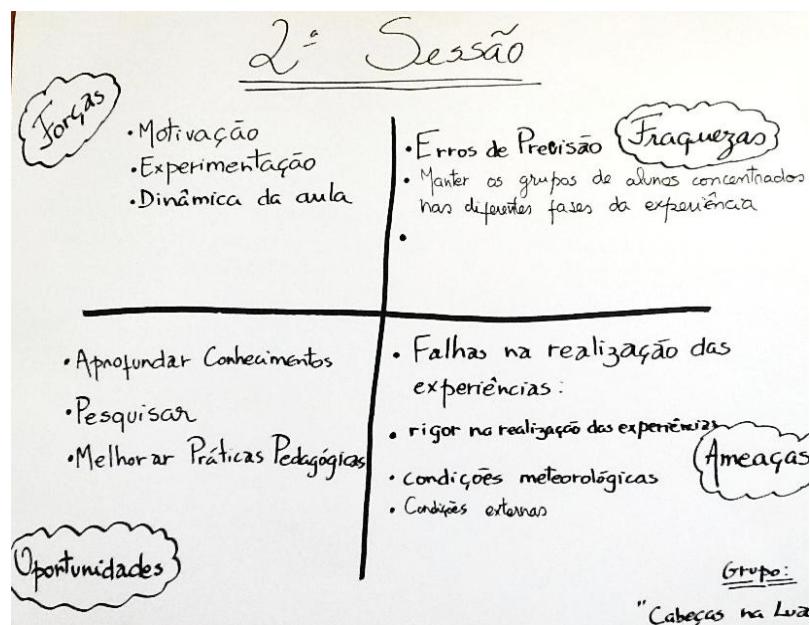 2ª Sessão
Forças
• Motivação
• Experimentação
• Dinâmica da aula
Fraquezas
• Erros de Precisão
• Manter os grupos de alunos concentrados
nas diferentes fases da experiência
•
• Aprofundar Conhecimentos
• Pesquisar
• Melhorar Práticas Pedagógicas
Oportunidades
• Falhas na realização das
experiências:
• rigor na realização das experiências
• condições meteorológicas
• Condições externas
Ameaças
Grupo:
"Cabeças na Lua